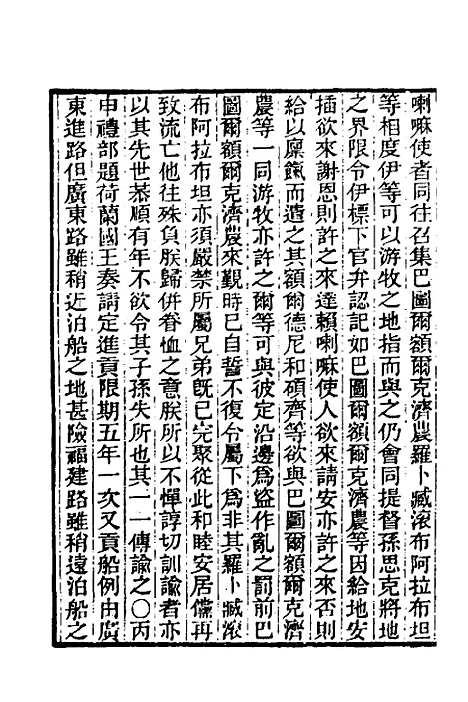 喇嘛使者同往召集巴圖爾額爾克濟農羅卜臧滚布阿拉布坦
等相度伊等可以游牧之地指而與之仍會同提督孫思克將地
之界限令伊標下官弁認記如巴圖爾額爾克濟農等因給地安
插欲來謝恩則許之來達賴喇嘛使人欲來請安亦許之來否則
給以廩餼而遣之其額爾德尼和碩齊等欲與巴圖爾額爾克濟
農等一同游牧亦許之爾等可與彼定沿邊為盜作亂之罰前巴
圖爾額爾克濟農來覲時已自誓不復令屬下為非其羅卜臧滚
布阿拉布坦亦須嚴禁所屬兄弟既已完聚從此和睦安居儻再
致流亡他往殊負朕歸併眷恤之意朕所以不憚諄切訓諭者亦
以其先世恭順有年不欲令其子孫失所也其一一傳諭之○丙
申禮部題荷蘭國王奏請定進貢限期五年一次又貢船例由廣
東進路但廣東路雖稍近泊船之地甚險福建路雖稍遠泊船之